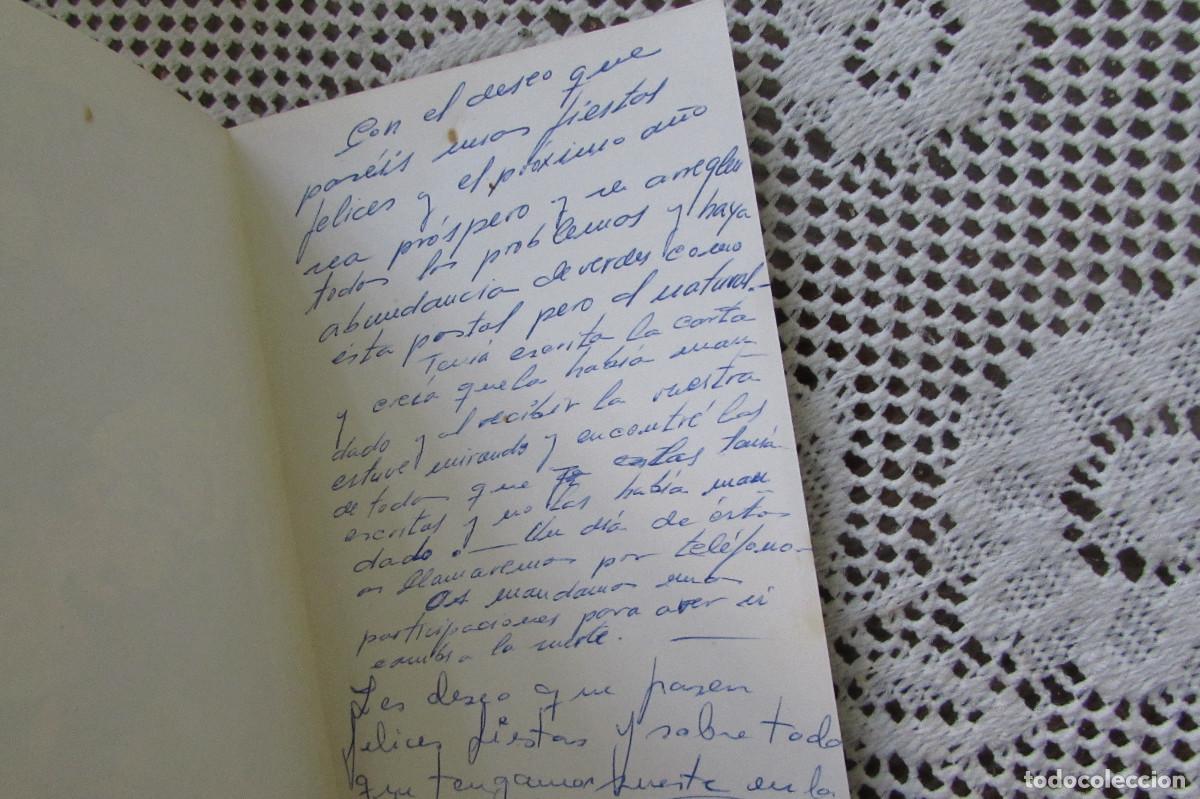 Con el deseo que
paséis unas fiestas
felices y el próximo año
sea próspero y se arreglen
todos los problemas y haya
abundancia de verdes como
esta postal pero al natural.-
Tenía escrita la carta
y creía que la había man
dado y al recibir la vuestra
estuve mirando y encontré las
de todos que estas tenía
escritas y no las había man
dado. — Un día de éstos
os llamaremos por teléfono-
Os mandamos unas
participaciones para a ver si
cambia la suerte. —
Les deseo que pasen
felices fiestas y sobre todo
que tengamos suerte en la
todocoleccion